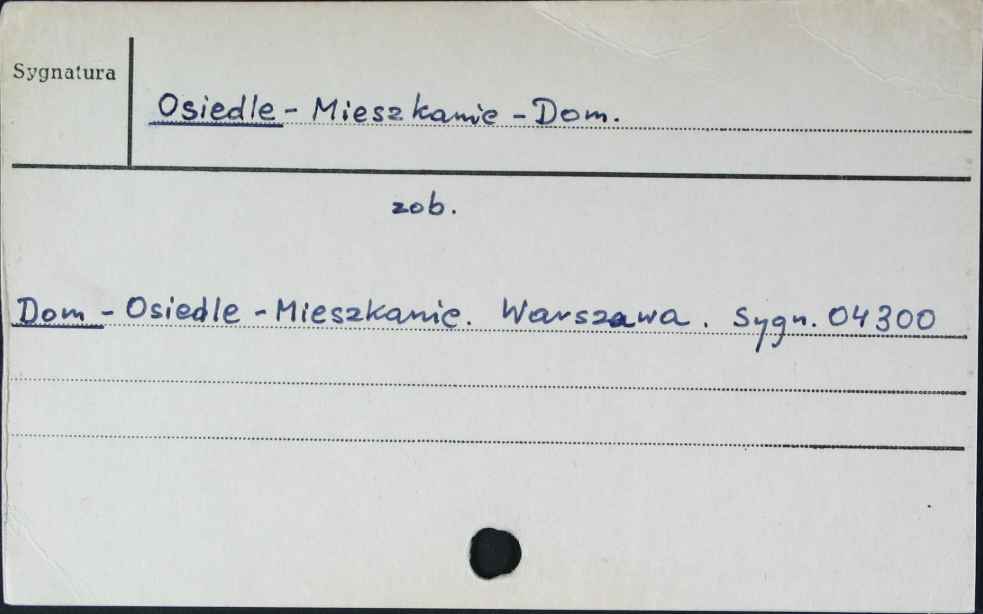 Sygnatura
Osiedle - Mieszkanie - Dom.
zob.
Dom - Osiedle - Mieszkanie. Warszawa. Sygn. 04300